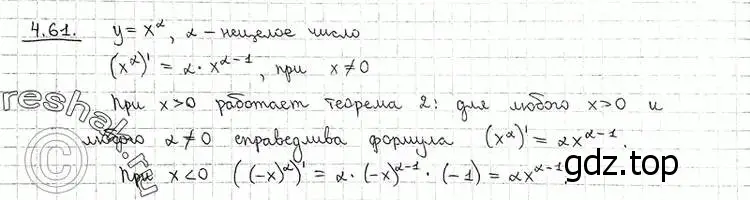 4.61. y = x^α, α – нецелое число
(x^α)' = α · x^(α–1), при x ≠ 0
При x > 0 работает теорема 2: для любого x > 0 и
любого α ≠ 0 справедлива формула (x^α)' = αx^(α–1).
При x < 0 ((-x)^α)' = α · (-x)^(α–1) · (-1) = αx^(α–1)
reshak.ru
©
gdz.top